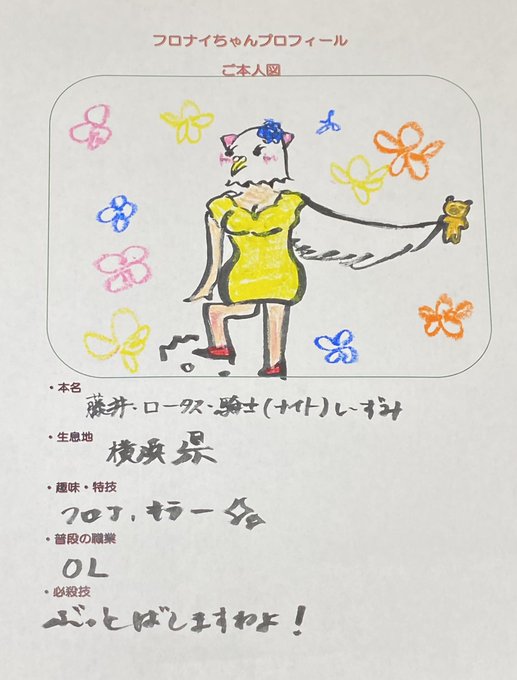 フロナイちゃんプロフィール
ご本人図
・本名
藤井・ロータス・騎士(ナイト)しーずみ
・生息地
横浜県
・趣味・特技
フロア、キラー
・普段の職業
OL
・必殺技
ぶっとばしますわよ!